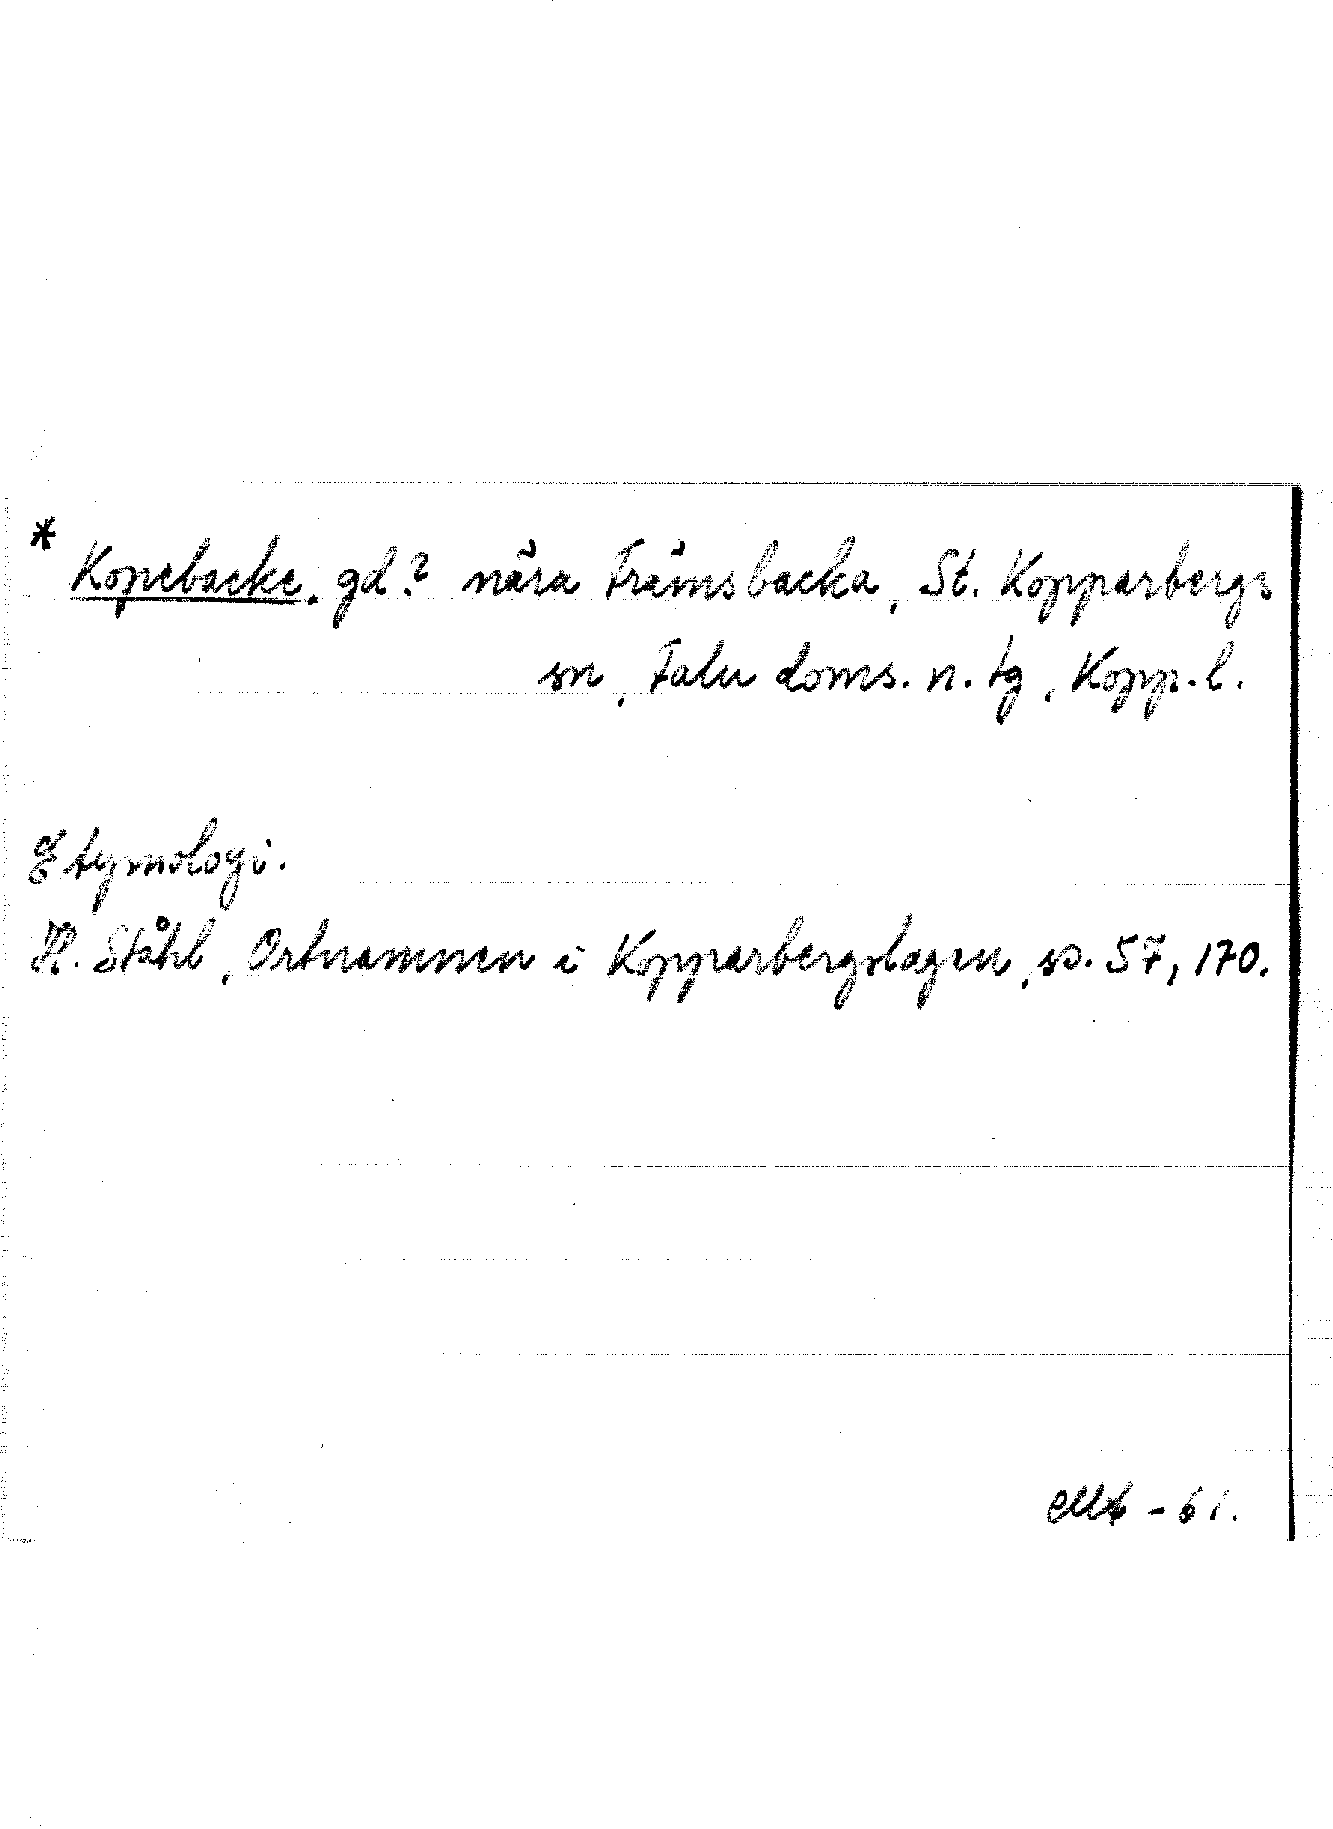 * Kopebacke, gd? nära Främsbacka, St. Kopparbergs
sn, Falu doms. n. tg, Kopp. l.
Etymologi.
H. Ståhl, Ortnamnen i Kopparbergslagen, ss. 57, 170.
-61.